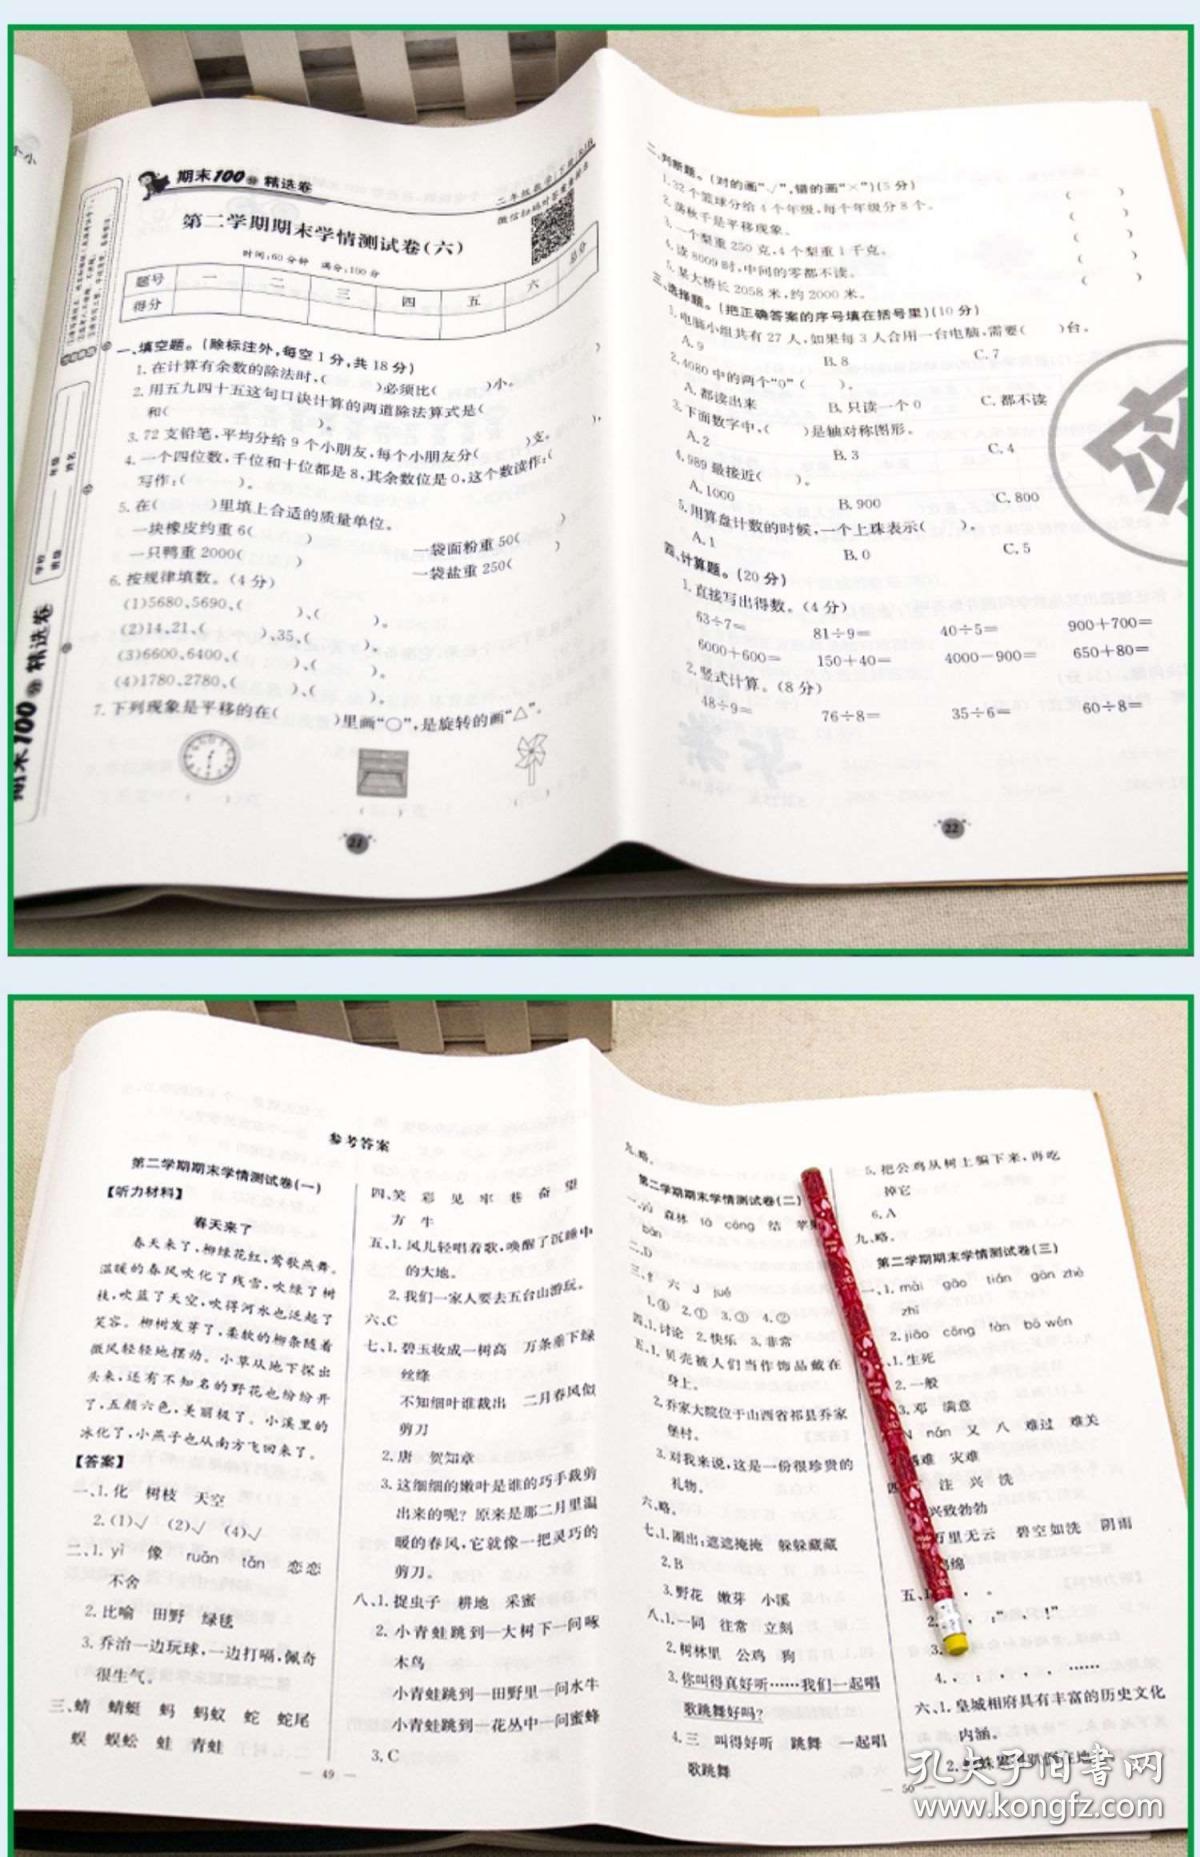 期末100分 精选卷
第二学期期末学情测试卷(六)
时间:60分钟 满分:100分
题号 一 二 三 四 五 六 总分
得分
一、填空题。(除标注外,每空1分,共18分)
1.在计算有余数的除法时,( )必须比( )小。
2.用五九四十五这句口诀计算的两道除法算式是( )
和( )。
3.72支铅笔,平均分给9个小朋友,每个小朋友分( )支。
4.一个四位数,千位和十位都是8,其余数位是0,这个数读作:( ),
写作:( )。
5.在( )里填上合适的质量单位。
一块橡皮约重6( ) 一袋面粉重50( )
一只鸭重2000( ) 一袋盐重250( )
6.按规律填数。(4分)
(1)5680、5690、( )、( )。
(2)14、21、( )、35、( )。
(3)6600、6400、( )、( )。
(4)1780、2780、( )、( )。
7.下列现象是平移的在( )里画"○",是旋转的画"△"。
( ) ( ) ( )
21
期末100分 精选卷
二、判断题。(对的画"√",错的画"×")(5分)
1.32个篮球分给4个年级,每个年级分8个。 ( )
2.荡秋千是平移现象。 ( )
3.一个梨重250克,4个梨重1千克。 ( )
4.读8009时,中间的零都不读。 ( )
5.某大桥长2058米,约2000米。 ( )
三、选择题。(把正确答案的序号填在括号里)(10分)
1.电脑小组共有27人,如果每3人合用一台电脑,需要( )台。
A.9 B.8 C.7
2.4080中的两个"0"( )。
A.都读出来 B.只读一个0 C.都不读
3.下面数字中,( )是轴对称图形。
A.2 B.3 C.4
4.989最接近( )。
A.1000 B.900 C.800
5.用算盘计数的时候,一个上珠表示( )。
A.1 B.0 C.5
四、计算题。(20分)
1.直接写出得数。(4分)
63÷7= 81÷9= 40÷5= 900+700=
6000+600= 150+40= 4000-900= 650+80=
2.竖式计算。(8分)
48÷9= 76÷8= 35÷6= 60÷8=
22
参考答案
第二学期期末学情测试卷(一)
【听力材料】
春天来了
春天来了,柳绿花红,莺歌燕舞。
温暖的春风吹化了残雪,吹绿了树
枝,吹蓝了天空,吹得河水也泛起了
笑容。柳树发芽了,柔软的柳条随着
微风轻轻地摆动。小草从地下探出
头来,还有不知名的野花也纷纷开
了,五颜六色,美丽极了。小溪里的
冰化了,小燕子也从南方飞回来了。
【答案】
一、1.化 树枝 天空
2.(1)√ (2)√ (4)√
二、1.yì 像 ruǎn tǎn 恋恋
不舍
2.比喻 田野 绿毯
3.乔治一边玩球,一边打嗝,佩奇
很生气。
三、蜻 蜻蜓 蚂 蚂蚁 蛇 蛇尾
蜈 蜈蚣 蛙 青蛙
四、笑 彩 见 牢 巷 奋 望
方 牛
五、1.风儿轻唱着歌,唤醒了沉睡中
的大地。
2.我们一家人要去五台山游玩。
六、C
七、1.碧玉妆成一树高 万条垂下绿
丝绦
不知细叶谁裁出 二月春风似
剪刀
2.唐 贺知章
3.这细细的嫩叶是谁的巧手裁剪
出来的呢?原来是那二月里温
暖的春风,它就像一把灵巧的
剪刀。
八、1.捉虫子 耕地 采蜜
2.小青蛙跳到—大树下—问啄
木鸟
小青蛙跳到—田野里—问水牛
小青蛙跳到—花丛中—问蜜蜂
3.C
— 49 —
九、略。
第二学期期末学情测试卷(二)
森林 cóng 结 苹果
bàn
二、D
六 J jué
1.④ 2.① 3.③ 4.②
四、1.讨论 2.快乐 3.非常
五、1.贝壳被人们当作饰品戴在
身上。
2.乔家大院位于山西省祁县乔家
堡村。
3.对我来说,这是一份很珍贵的
礼物。
六、略。
七、1.圈出:遮遮掩掩 躲躲藏藏
2.B
3.野花 嫩芽 小溪
八、1.一同 往常 立刻
2.树林里 公鸡 狗
3.你叫得真好听……我们一起唱
歌跳舞好吗?
4.三 叫得好听 跳舞 一起唱
歌跳舞
5.把公鸡从树上骗下来,再吃
掉它
6.A
九、略。
第二学期期末学情测试卷(三)
一、1.mài gāo tián gàn zhè
zhī
2.jiāo cóng fàn bō wén
1.生死
2.一般
3.邓 满意
nán 又 八 难过 难关
难 灾难
四 注 兴 洗
兴致勃勃
万里无云 碧空如洗 阴雨
绵绵
五、1.
六、1.皇城相府具有丰富的历史文化
内涵。
— 50 —
孔夫子旧书网
www.kongfz.com